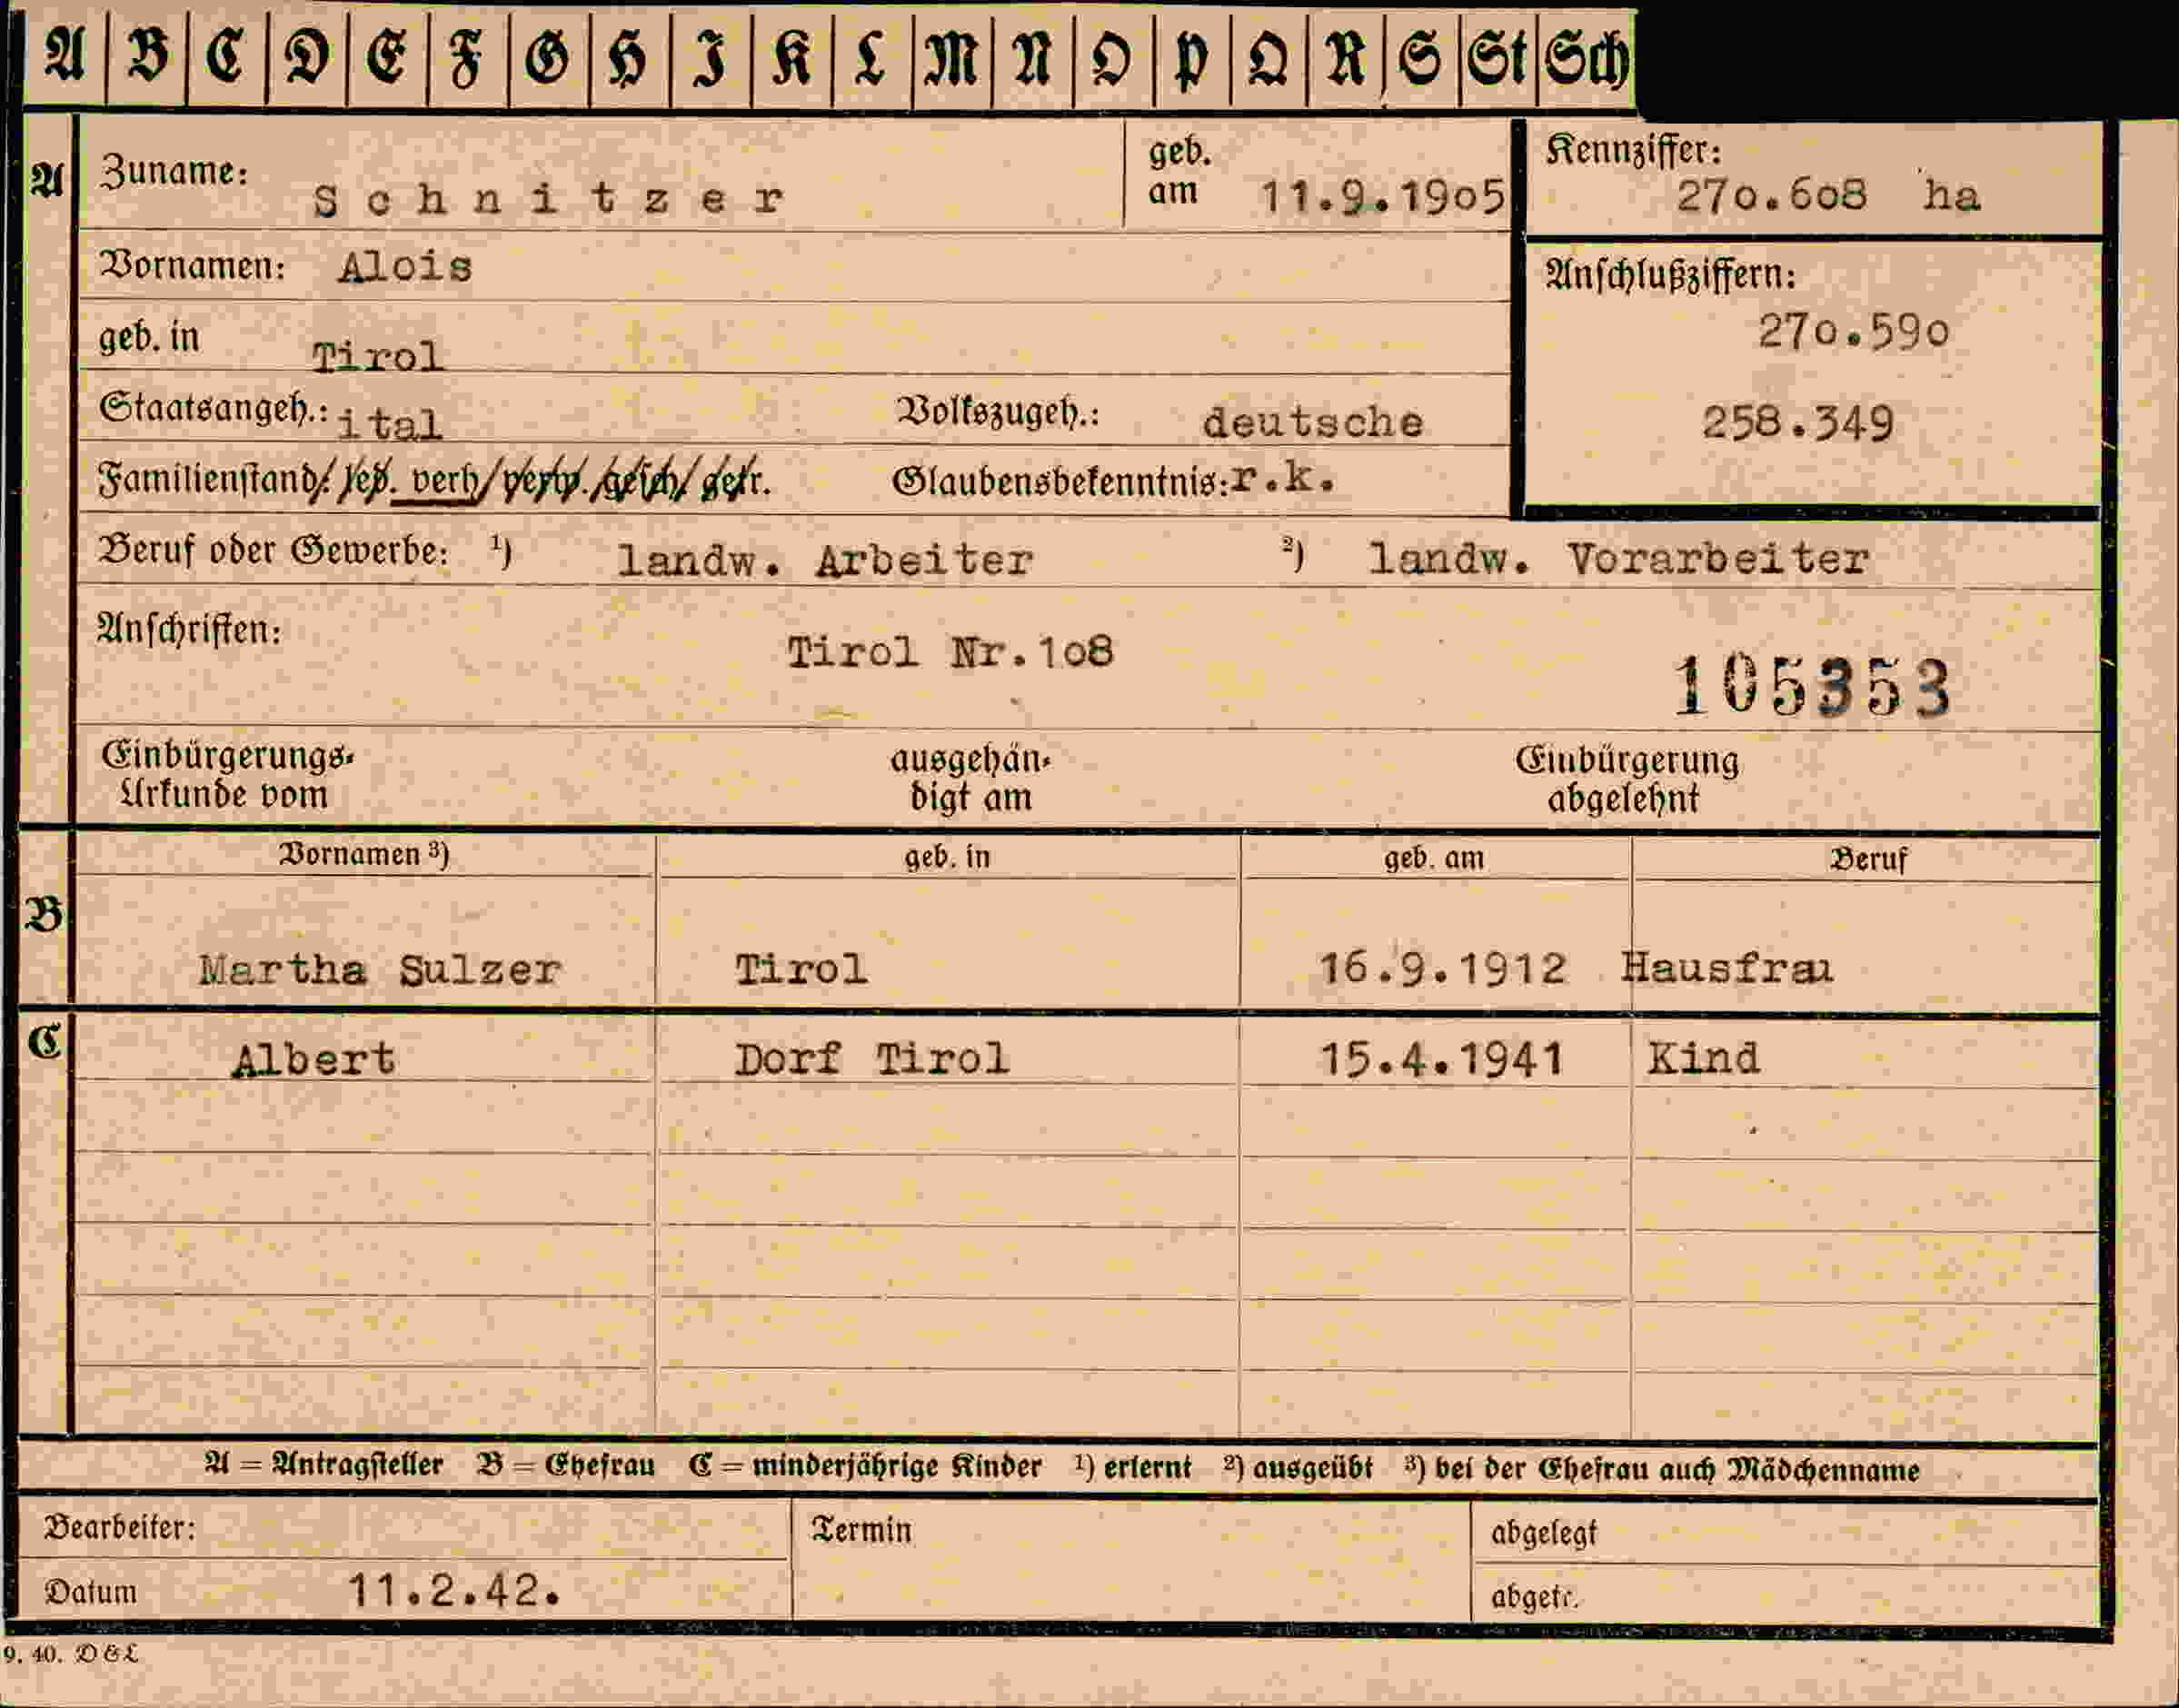 A B C D E F G H I K L M N O P Q R S St Sch
A Zuname: Schnitzer geb. am 11.9.1905 Kennziffer: 270.608 ha
Vornamen: Alois Anschlußziffern:
geb. in Tirol 270.590
Staatsangeh.: ital Volkszugeh.: deutsche 258.349
Familienstand: led. verh. verw. gesch. getr. Glaubensbekenntnis: r.k.
Beruf oder Gewerbe: ¹) landw. Arbeiter ²) landw. Vorarbeiter
Anschriften: Tirol Nr.108 105353
Einbürgerungs- ausgehän- Einbürgerung
Urkunde vom digt am abgelehnt
Vornamen ³) geb. in geb. am Beruf
B Martha Sulzer Tirol 16.9.1912 Hausfrau
C Albert Dorf Tirol 15.4.1941 Kind
A = Antragsteller B = Ehefrau C = minderjährige Kinder ¹) erlernt ²) ausgeübt ³) bei der Ehefrau auch Mädchenname
Bearbeiter: Termin abgelegt
Datum 11.2.42. abgetr.
9. 40. D & L